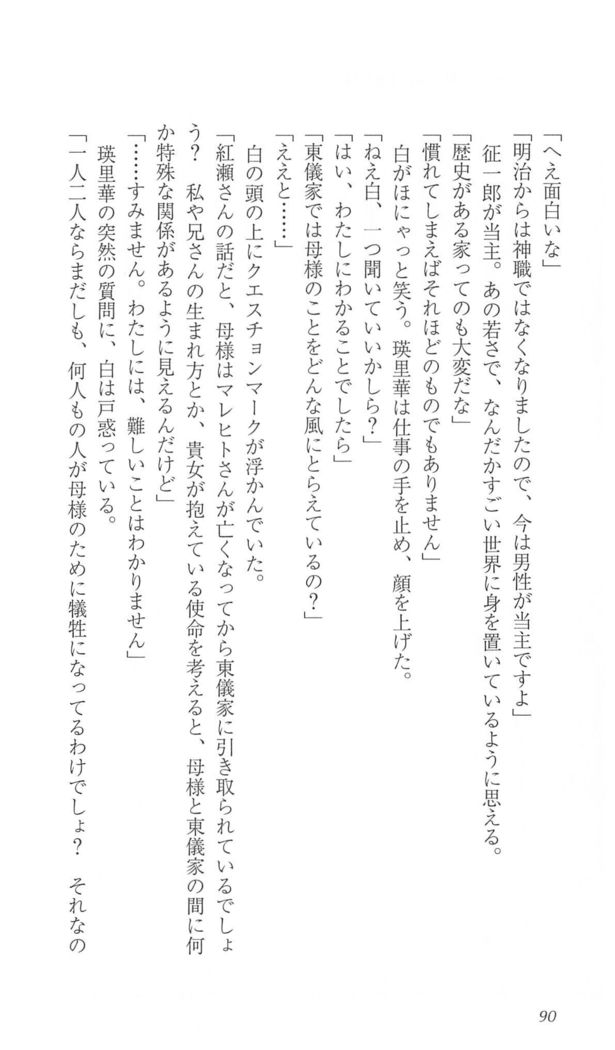 「へえ面白いな」
「明治からは神職ではなくなりましたので、今は男性が当主ですよ」
征一郎が当主。あの若さで、なんだかすごい世界に身を置いているように思える。
「歴史がある家ってのも大変だな」
「慣れてしまえばそれほどのものでもありません」
白がほにゃっと笑う。瑛里華は仕事の手を止め、顔を上げた。
「ねえ白、一つ聞いていいかしら？」
「はい、わたしにわかることでしたら」
「東儀家では母様のことをどんな風にとらえているの？」
「ええと……」
白の頭の上にクエスチョンマークが浮かんでいた。
「紅瀬さんの話だと、母様はマレヒトさんが亡くなってから東儀家に引き取られているでしょ
う？　私や兄さんの生まれ方とか、貴女が抱えている使命を考えると、母様と東儀家の間に何
か特殊な関係があるように見えるんだけど」
「……すみません。わたしには、難しいことはわかりません」
瑛里華の突然の質問に、白は戸惑っている。
「一人二人ならまだしも、何人もの人が母様のために犠牲になってるわけでしょ？　それなの
90